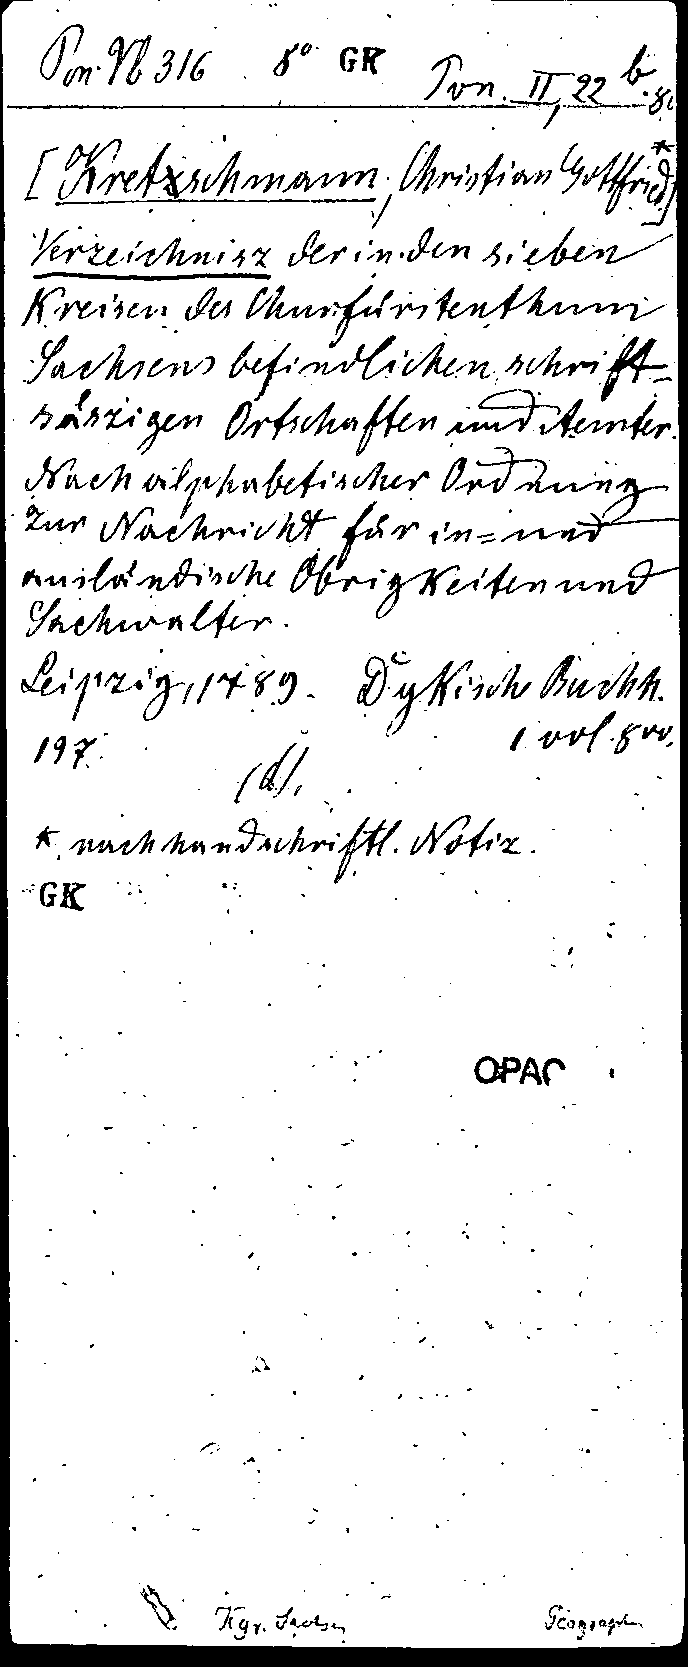 Pon. Vb 316 8° GK Pon. II, 22 b. 8°
[Kretzschmann, Christian Gottfried]*
Verzeichnisz der in den sieben
Kreisen des Churfürstenthum
Sachsens befindlichen schrift-
säszigen Ortschaften und Aemter.
Nach alphabetischer Ordnung
zur Nachricht für in= und
ausländische Obrigkeiten und
Sachwalter.
Leipzig, 1789. Dykische Buchh.
197. 1 vol. 8vo.
(d).
* nach handschriftl. Notiz.
GK
OPAC
Kgr. Sachsen Geograph.